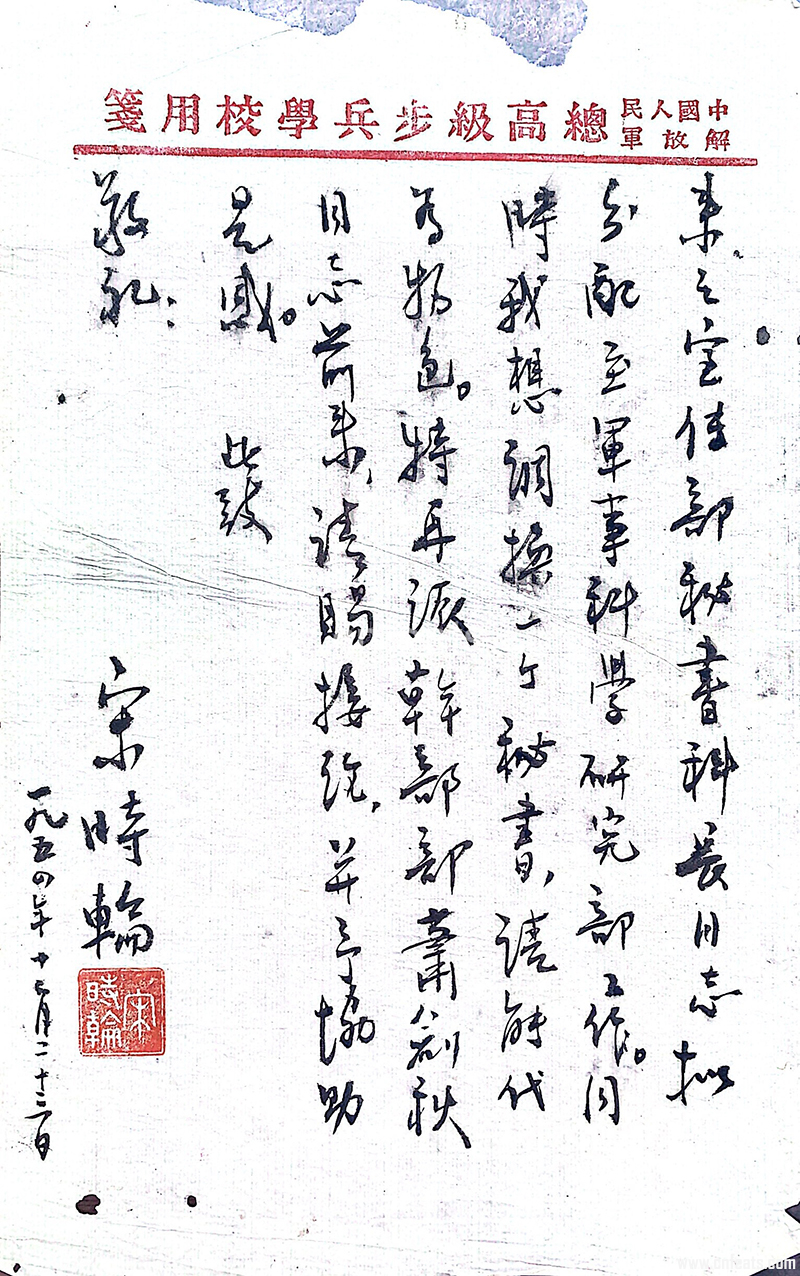 中國人民解放軍總高級步兵學校用箋
来之部秘書科長同志拟
分配至軍事科學研究部工作。同
時我想調換一个秘書,請能代
为物色。特再派幹部部蕭劍秋
同志前来,請賜接談,并予協助
是感。 此致
敬礼:
宋時輪
一九五四年十二月二十二日
宋時輪